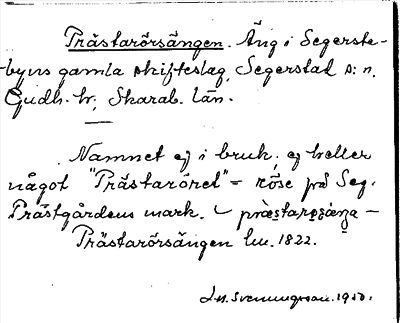 Prästarörsängen. Äng i Segerste-
-byns gamla skifteslag, Segerstad s:n.
Gudh. hr, Skarab. län.
Namnet ej i bruk, ej heller
något "Prästaröret" - röse på Seg.
Prästgårdens mark. -
Prästarörsängen lm. 1822.
Svenungsson. 1930.